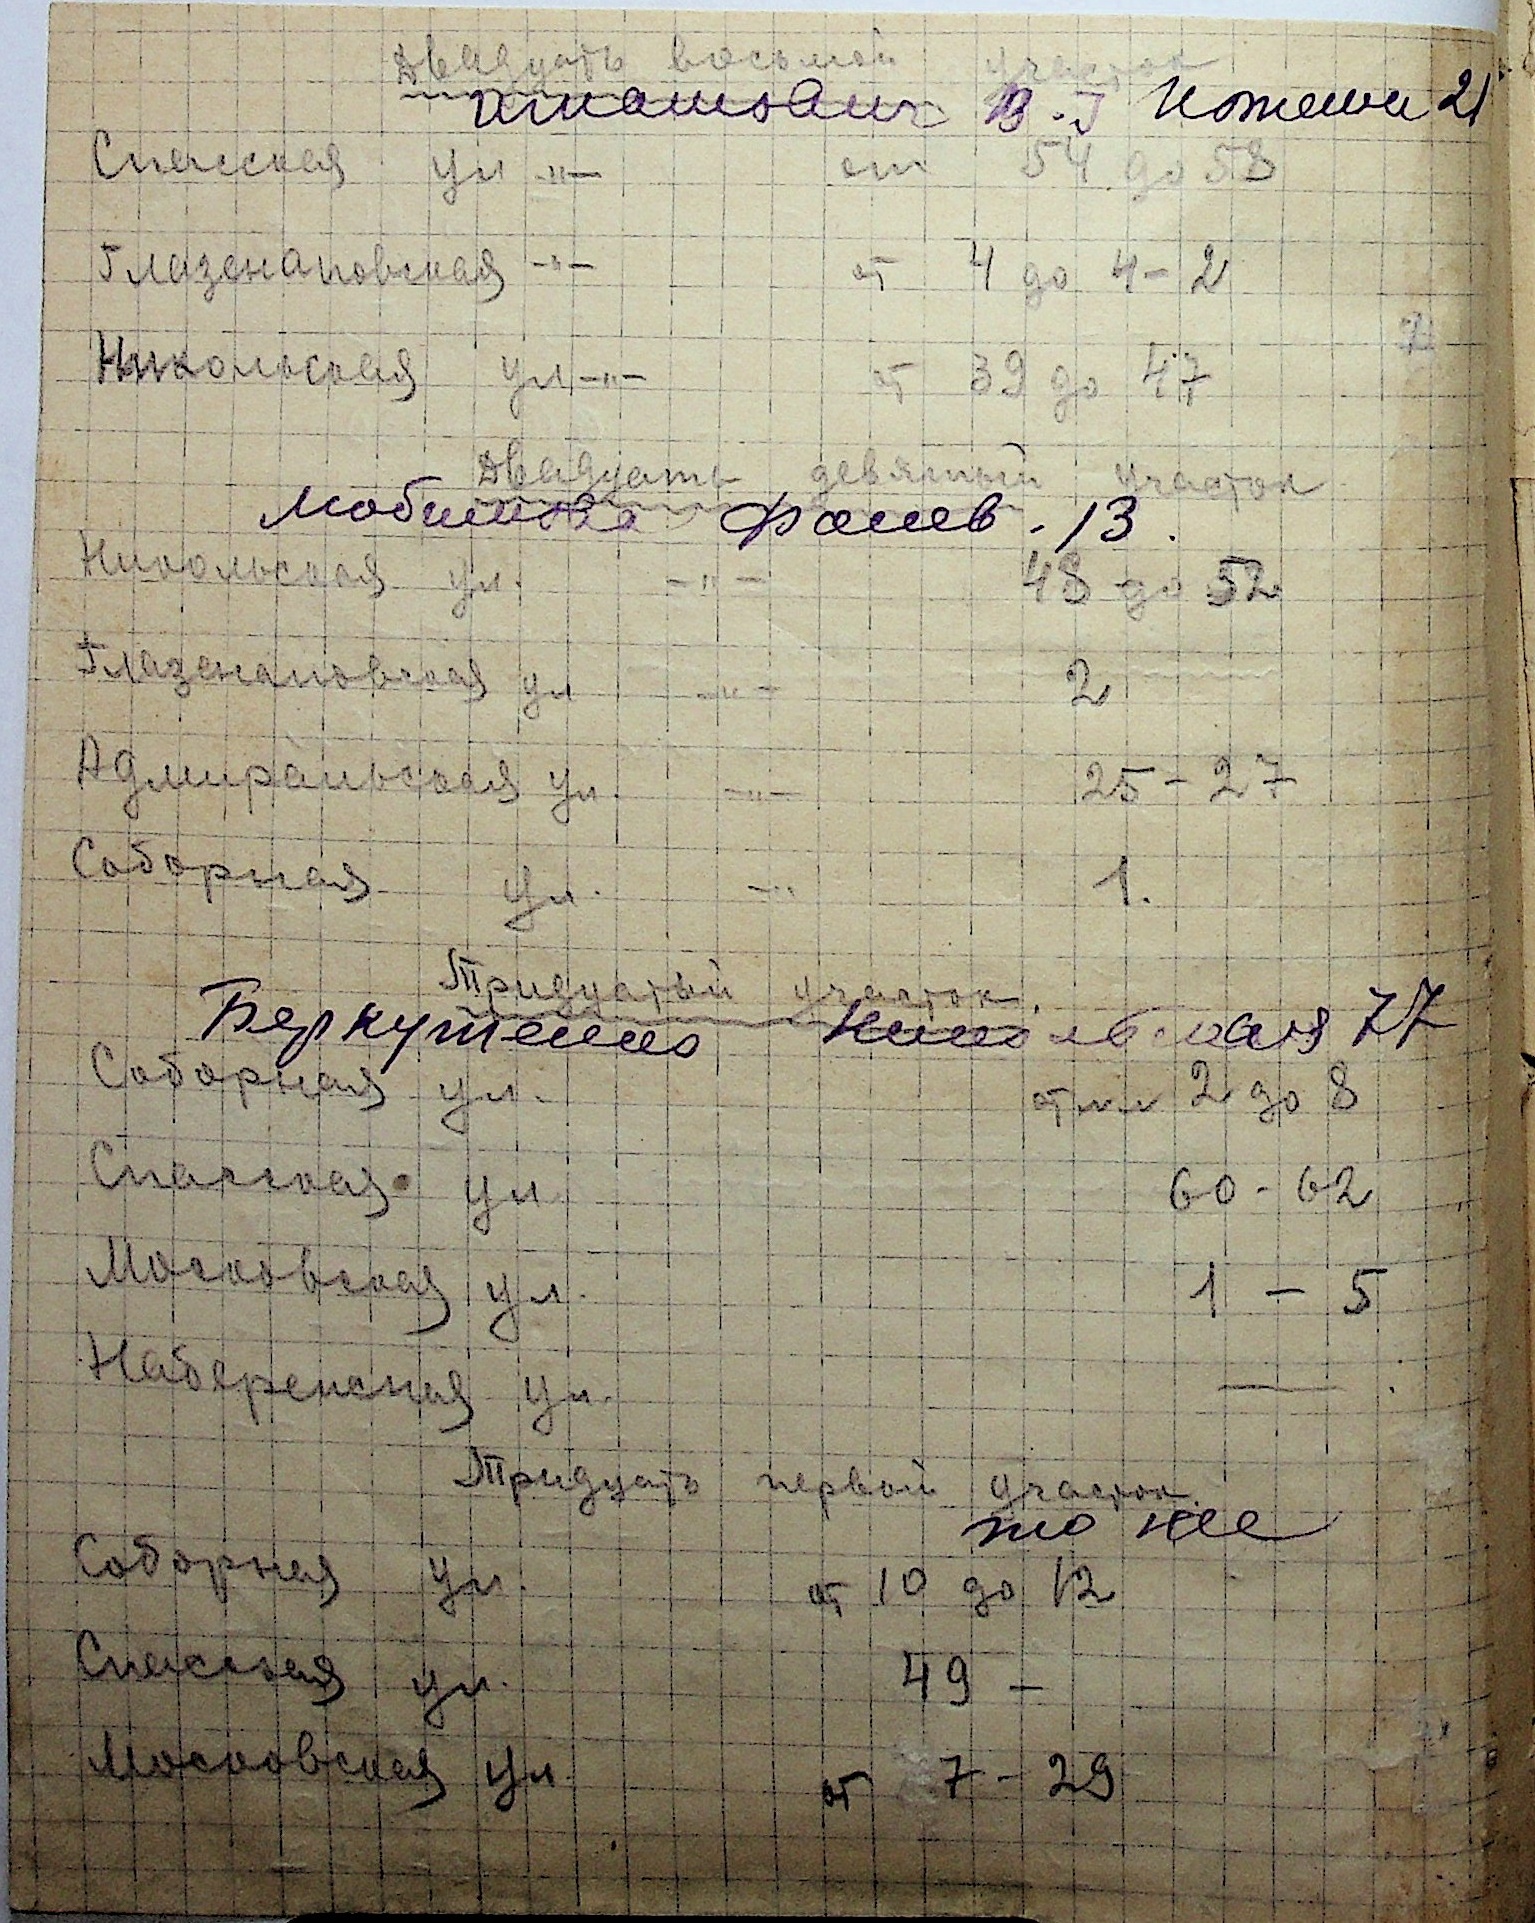 Двадцать восьмой участок
В. 21
Спасская ул -"- от 54 до 58
Глазенаповская -"- от 4 до 4-2
Никольская ул -"- от 39 до 47
Двадцать девятый участок
13.
Никольская ул. -"- 48 до 52
Глазенаповская ул -"- 2
Адмиральская ул. -"- 25-27
Соборная ул. -" 1.
Тридцатый участок.
Беркутенко Никольская 77
Соборная ул. 2 до 8
Спасская ул 60-62
Московская ул. 1 - 5
Набережная ул. — .
Тридцать первой участок.
то же
Соборная ул. от 10 до 12
Спасская ул. 49 -
Московская ул. от 7-29